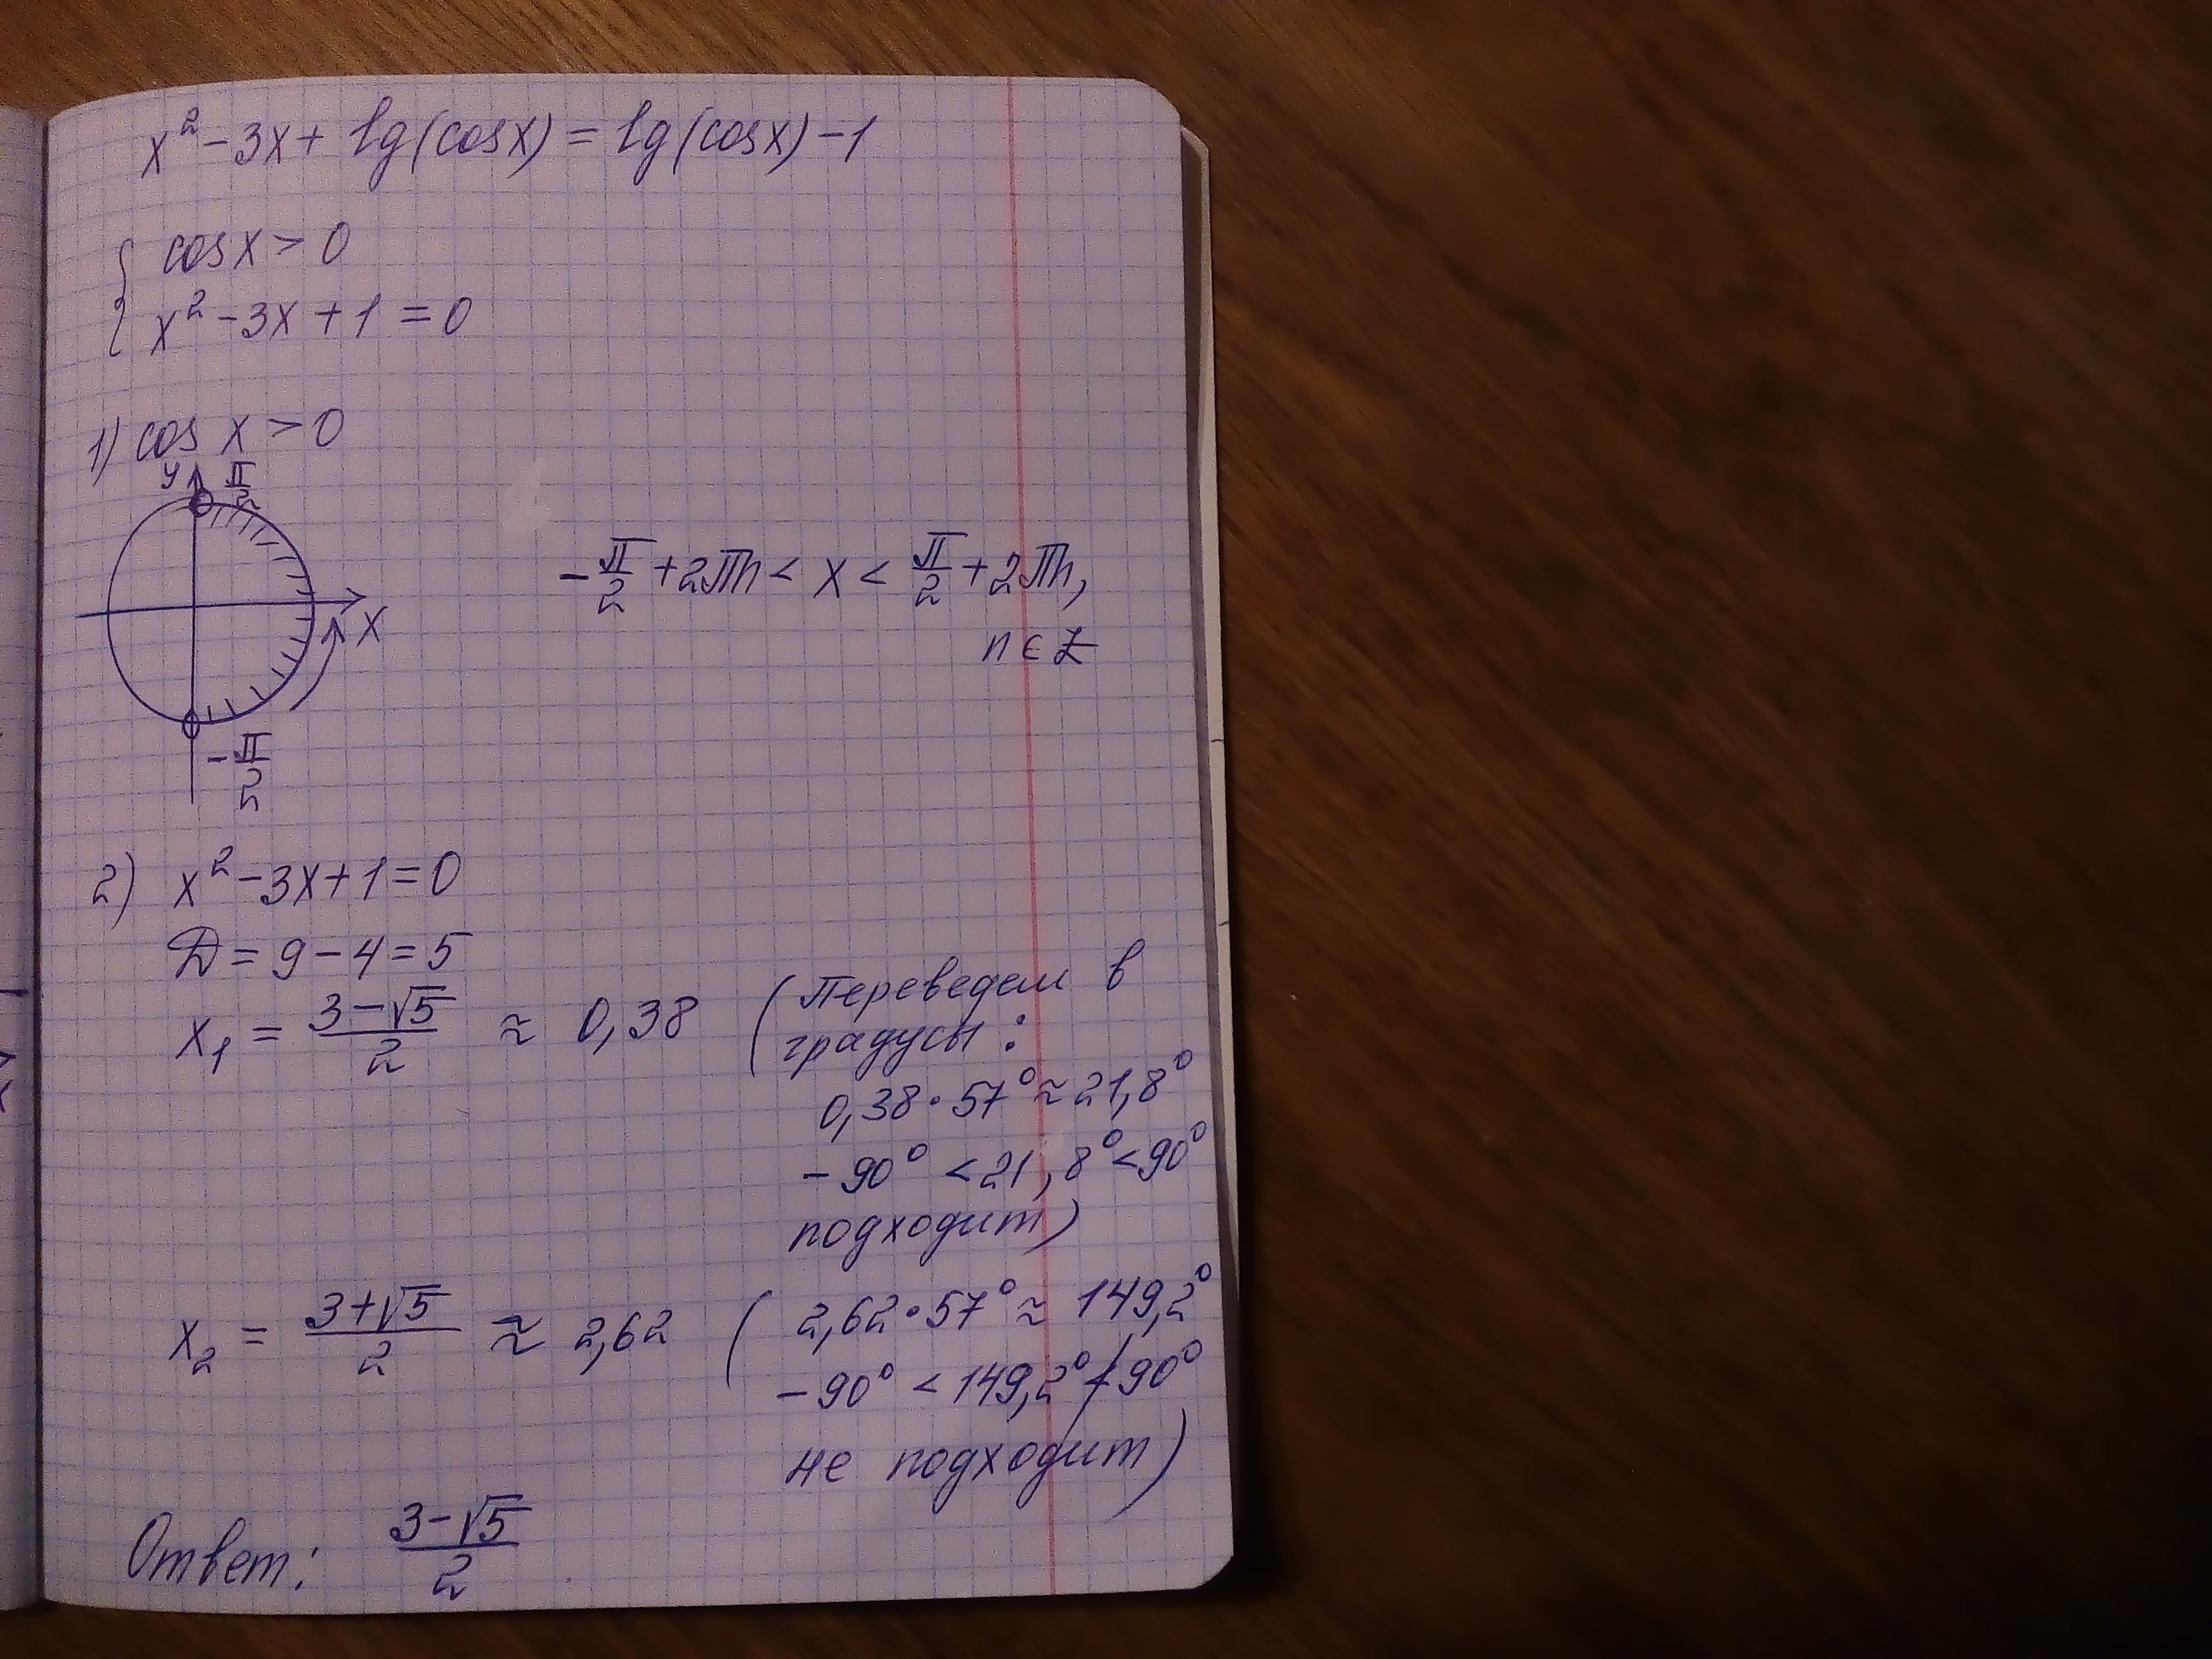 x² - 3x + lg(cosx) = lg(cosx) - 1
{ cosx > 0
x² - 3x + 1 = 0
1) cos x > 0
y π/2
-π/2 + 2πn < x < π/2 + 2πn,
x
n ∈ Z
-π/2
2) x² - 3x + 1 = 0
D = 9 - 4 = 5
x₁ = (3 - √5)/2 ≈ 0,38 (Переведем в
градусы:
0,38 · 57° ≈ 21,8°
-90° < 21,8° < 90°
подходит)
x₂ = (3 + √5)/2 ≈ 2,62 (2,62 · 57° ≈ 149,2°
-90° < 149,2° ≮ 90°
не подходит)
Ответ: (3 - √5)/2